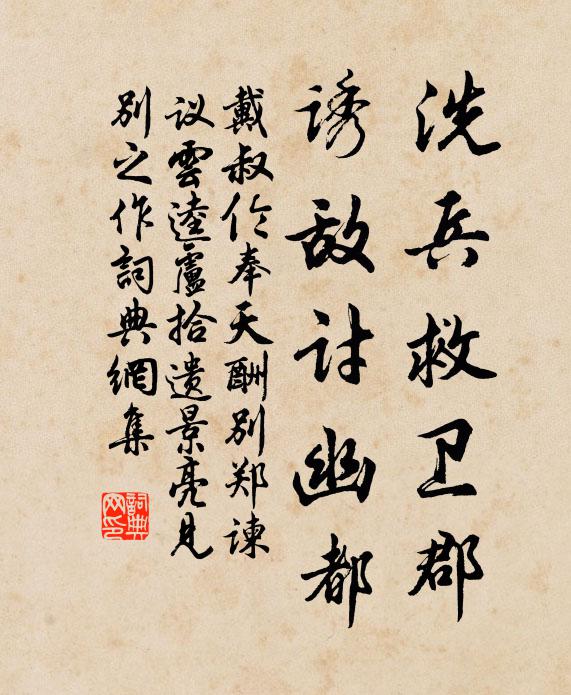 洗兵救卫郡
诱敌讨幽都
戴叔伦奉天酬别郑谏
议雲逵盧拾遗景亮见
别之作詞典網集
詞典网印